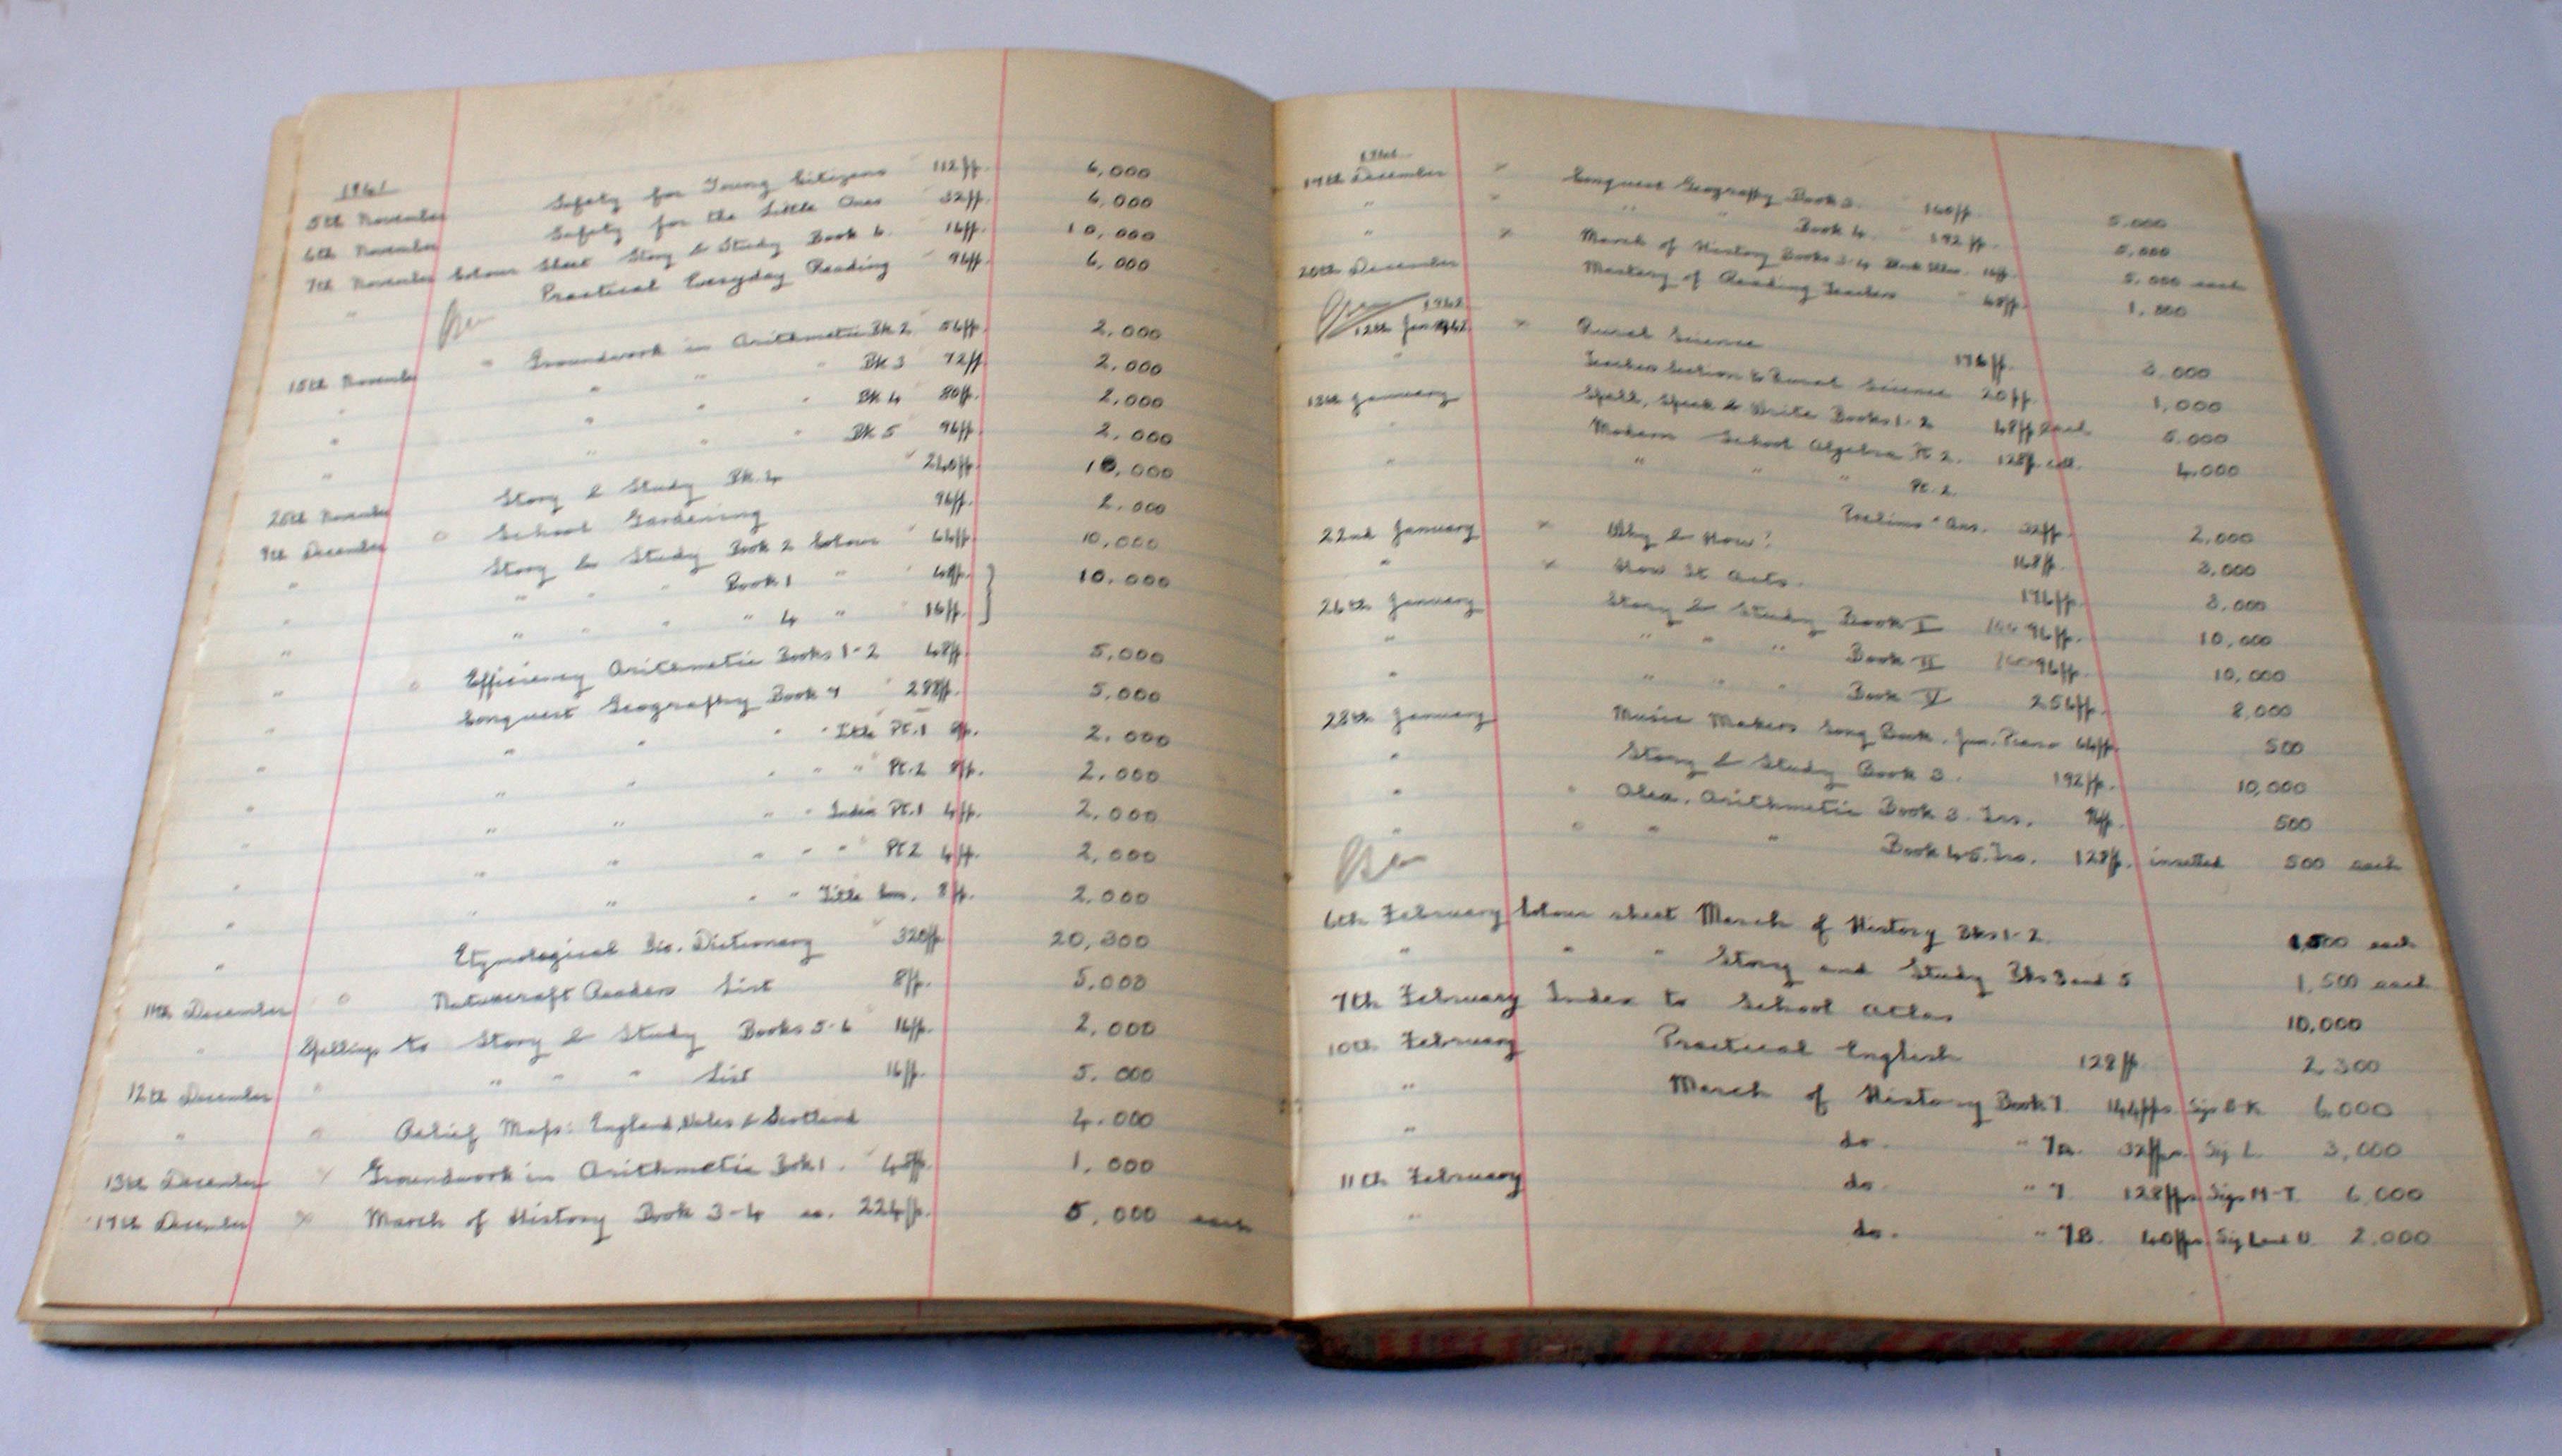 1961
5th November Safety for Young Citizens " 112pp. 6,000
6th November Safety for the Little Ones " 32pp. 6,000
7th November Colour Sheet Story & Study Book 6. " 16pp. 10,000
" Practical Everyday Reading " 96pp. 6,000
15th November " Groundwork in Arithmetic Bk 2 56pp. 2,000
" " " " Bk 3 72pp. 2,000
" " " " Bk 4 80pp. 2,000
" " " " Bk 5 96pp. 2,000
Story & Study Bk. 4 " 240pp. 10,000
School Gardening 96pp. 2,000
9th December Story & Study Book 2 Colour " 64pp. 10,000
" " " " Book 1 " " 48pp. } 10,000
" " " " " 4 " 16pp.
" Efficiency Arithmetic Books 1-2 48pp. 5,000
" Conquest Geography Book 4 " 288pp. 5,000
" " " " " Title Pt. 1 8pp. 2,000
" " " " " " Pt. 2 8pp. 2,000
" " " " " Index Pt. 1 4pp. 2,000
" " " " " " Pt 2 4pp. 2,000
" " " " " Title 8pp. 2,000
" Etymological Dictionary 320pp. 20,300
11th December Naturecraft Readers List 8pp. 5,000
" Spellings to Story & Study Books 5-6 16pp. 2,000
12th December " " " " List 16pp. 5,000
" " Relief Maps: England, Wales & Scotland 4,000
13th December Groundwork in Arithmetic Bk 1. " 48pp. 1,000
March of History Book 3-4 ea. 224pp. 5,000 each
1961
December Conquest Geography Book 3. " 160pp. 5,000
" " " " Book 4. " 192pp. 5,000
" March of History Books 3-4 16pp. 5,000 each
20th December Mastery of Reading Teachers " 48pp. 1,000
1962
12th Jan 1962 Rural Science 176pp. 3,000
" Teachers Section to Rural Science 20pp. 1,000
January Spell, Speak & Write Books 1-2 48pp each 5,000
" Modern School Algebra Pt 2. 128pp. 4,000
" " " " Pt. 2.
Prelims & Ans. 32pp. 2,000
22nd January Why & How? 168pp. 3,000
" How It Acts. 176pp. 3,000
26th January Story & Study Book I 96pp. 10,000
" " " " Book II 96pp. 10,000
" " " " Book V 256pp. 8,000
28th January Music Makers Song Book. Jun. Piano 64pp. 500
" Story & Study Book 3. 192pp. 10,000
" Arithmetic Book 3. 500
" " " Book 4-5. 128pp. inserted 500 each
6th February Colour sheet March of History Bks 1-2. each
" " " Story and Study Bks 3 and 5 1,500 each
7th February Index to School Atlas 10,000
10th February Practical English 128pp 2,300
" March of History Book 7. 144pps Sigs B-K 6,000
" do. " 7a. 32pps. Sig L. 3,000
11th February do. " 7. 128pps Sigs M-T. 6,000
" do. " 7B. 40pps. Sig L and U. 2,000